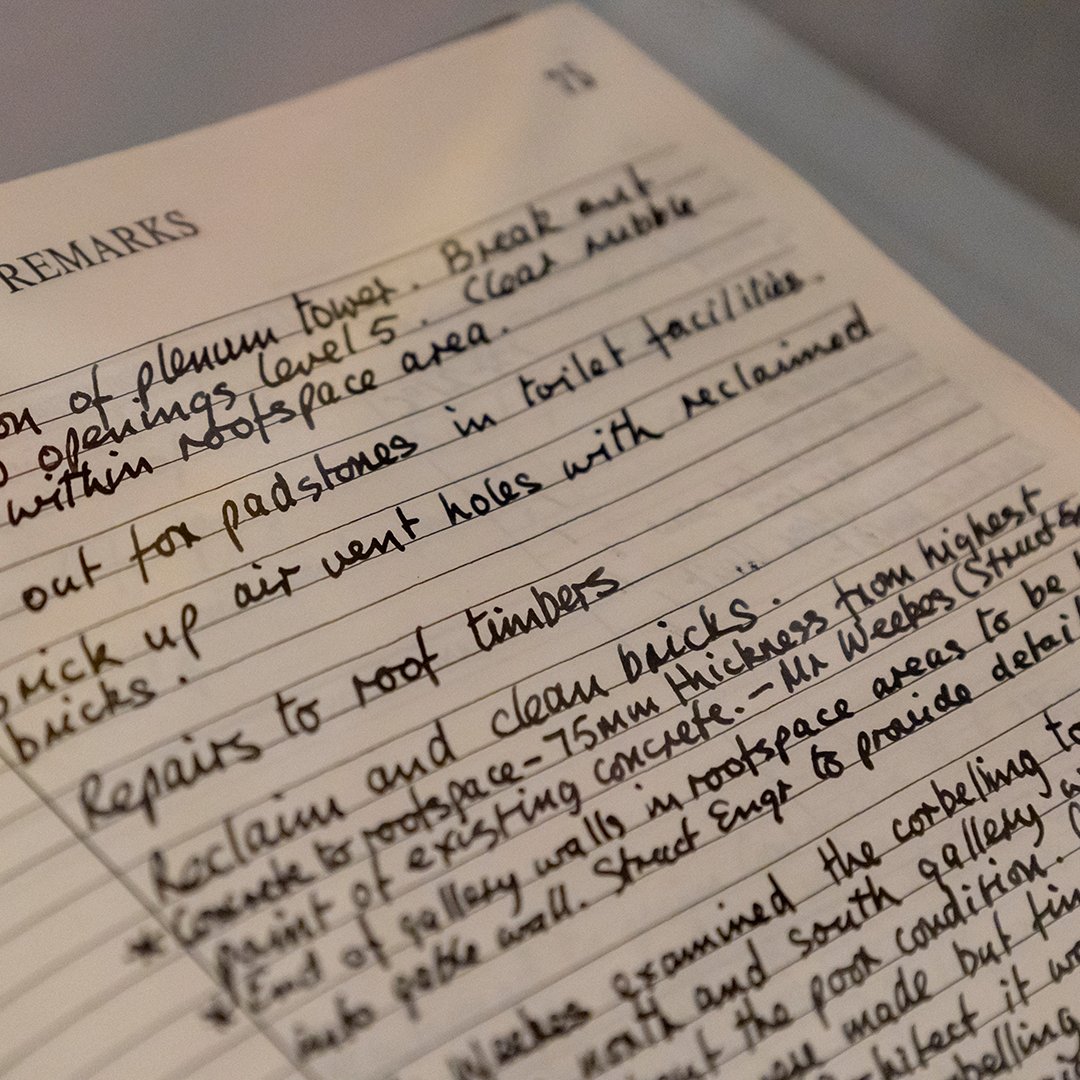 75
REMARKS
on of plenum tower. Break out
openings level 5. Clear rubble
within roofspace area.
out for padstones in toilet facilities.
brick up air vent holes with reclaimed
bricks.
Repairs to roof timbers
Reclaim and clean bricks.
* Concrete to roofspace - 75mm thickness from highest
point of existing concrete. - Mr Weekes (Struct En
* End of gallery walls in roofspace areas to be
into gable wall. Struct Engr to provide detail
Weekes examined the corbelling to
north and south gallery
the poor condition.
were made but tim
hitect it wo
belling